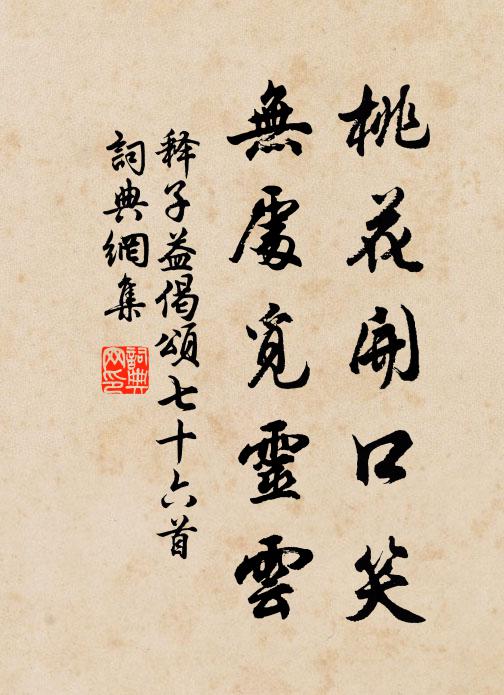 桃花開口笑
無處覓靈雲
释子益偈頌七十六首
詞典網集
詞典网印